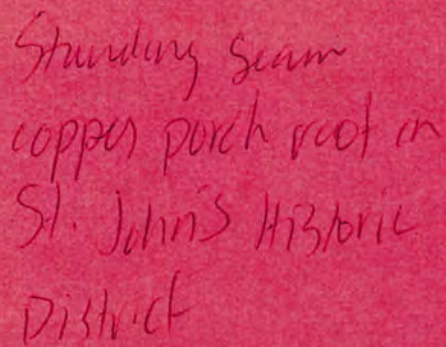 Standing Seam
copper porch roof on
St. John's Historic
District